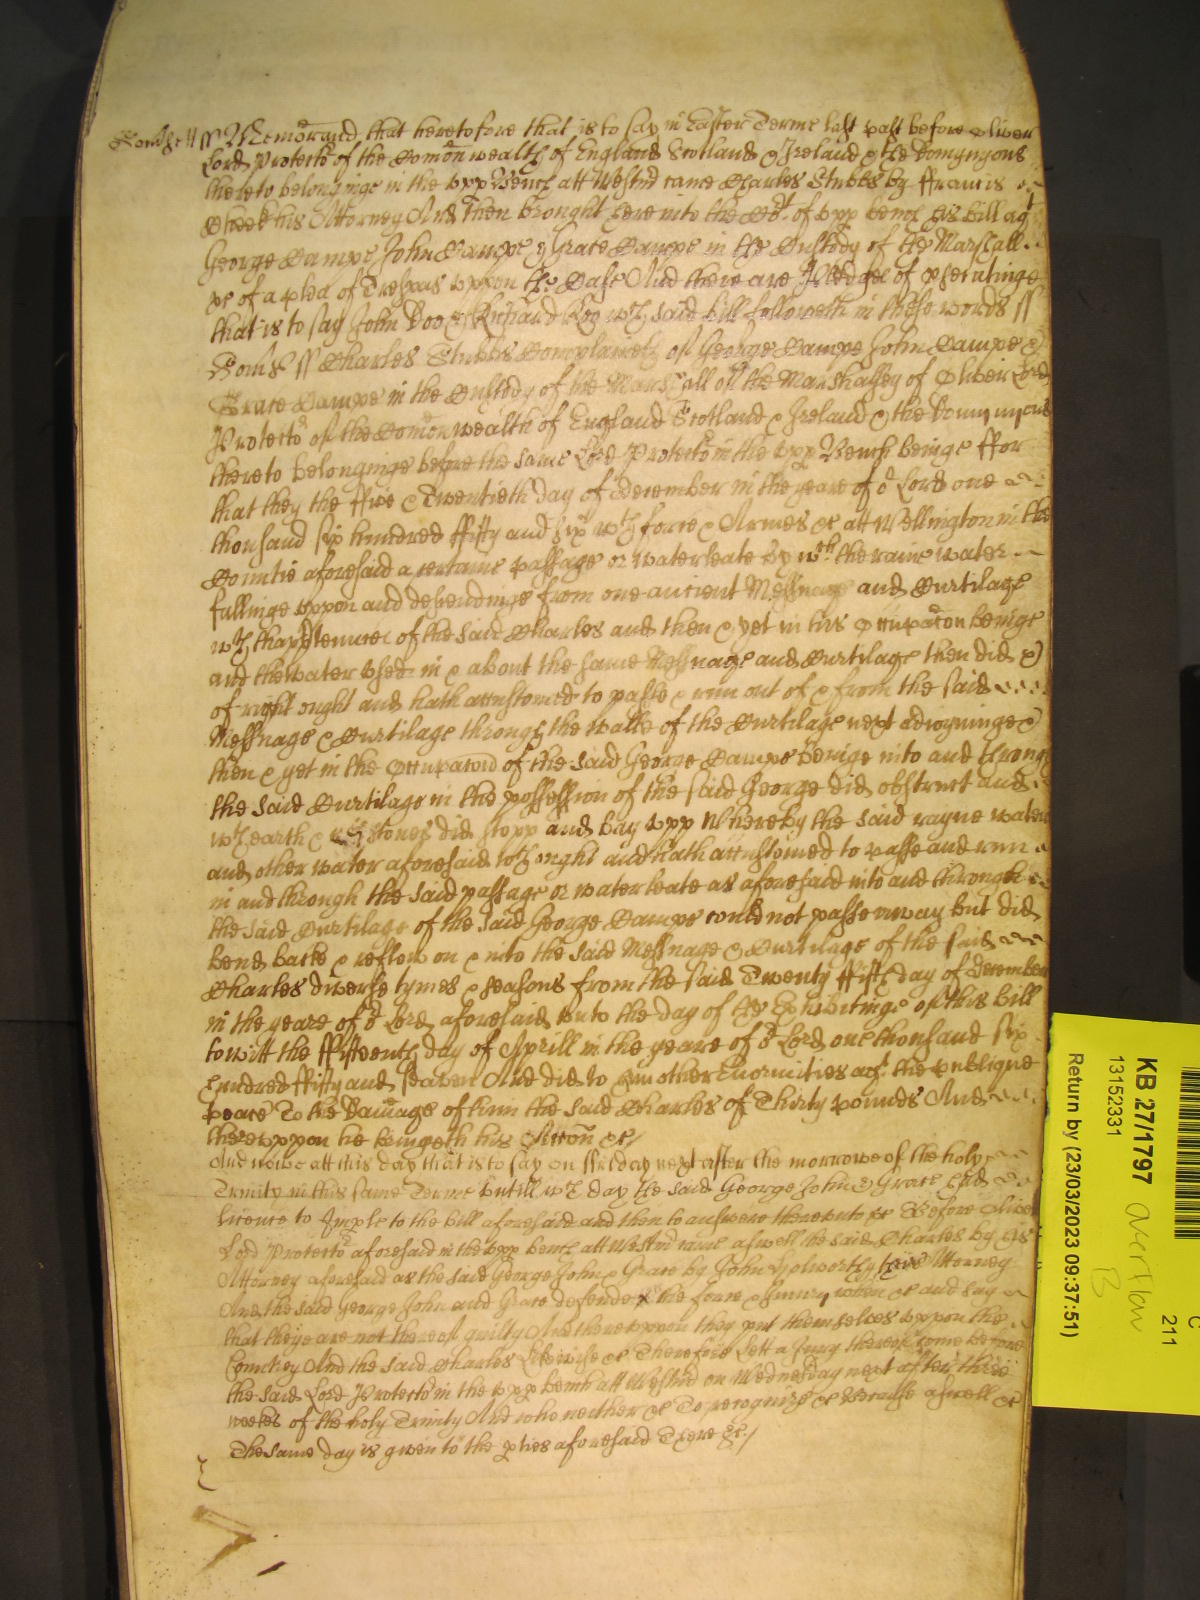 ss Memorand that heretofore that is to say in Easter Terme last past before Oliver
Lord Protector of the Comon wealth of England Scotland & Ireland & the Domynyons
thereto belonginge in the upp Bench att Westm came Charles Stubbs by ffrancis
Cheek his Attorney And then brought here into the Cort of upp bench his bill agt
George Campe John Campe & Grace Campe in the Custody of the Marshall
&c of a plea of Trespas uppon the Case And there are Pledges of prosecutinge
that is to say John Doe & Richard Roo wch said bill followeth in these words ss
ss Charles Stubbs Complaineth of George Campe John Campe &
Grace Campe in the Custody of the Marshall of the Marshalsey of Oliver Lord
Protector of the Comon wealth of England Scotland & Ireland & the Domynyons
thereto belonginge before the same Lord Protector in the upp Bench beinge ffor
that they the ffive & Twentieth day of December in the yeare of or Lord one
thousand six hundred ffifty and six wth force & Armes &c att Wellington in the
Countie aforesaid a certaine passage or waterleate by wch the raine water
fallinge uppon and descendinge from one ancient Messuage and Curtilage
wth thapptenncs of the said Charles and then & yet in his Occupacon beinge
and the water used in & about the same Messuage and Curtilage then did &
of right ought and hath accustomed to passe & runn out of & from the said
Messuage & Curtilage through the walls of the Curtilage next adioyninge &
then & yet in the Occupacon of the said George Campe beinge into and through
the said Curtilage in the possession of the said George did obstruct and
wth earth & stones did stopp and bay upp Whereby the said rayne water
and other water aforesaid wch ought and hath accustomed to passe and runn
in and through the said passage or waterleate as aforesaid into and through
the said Curtilage of the said George Campe could not passe away but did
bend backe & reflow on & into the said Messuage & Curtilage of the said
Charles diverse tymes & seasons from the said Twenty ffifth day of December
in the yeare of or Lord aforesaid unto the day of the Exhibitinge of this bill
to witt the ffifteenth day of Aprill in the yeare of or Lord one thousand six
hundred ffifty and seaven And did to him other Enormities agt the publique
peace To the Damage of him the said Charles of Thirty pounds And
thereuppon he bringeth his Accon &c
And nowe att this day that is to say on ffriday next after the morrowe of the holy
Trinity in this same Terme untill wch day the said George John & Grace had
licence to Imple to the bill aforesaid and then to answere thereunto &c Before Oliver
Lord Protector aforesaid in the upp bench att Westm came aswell the said Charles by his
Attorney aforesaid as the said George John & Grace by John their Attorney
And the said George John and Grace defende the force & Iniury when &c and say
that they are not thereof guilty And thereuppon they put themselves uppon the
Countrey And the said Charles Likewise &c Therefore Lett a Jury thereof come before
the said Lord Protector in the upp bench att Westm on Wednesday next after three
weekes of the holy Trinity And who neither &c To recognize &c Because aswell &c
The same day is given to the pties aforesaid There &c
C
211
KB 27/1797
overflow
B
13152331
Return by (23/03/2023 09:37:51)